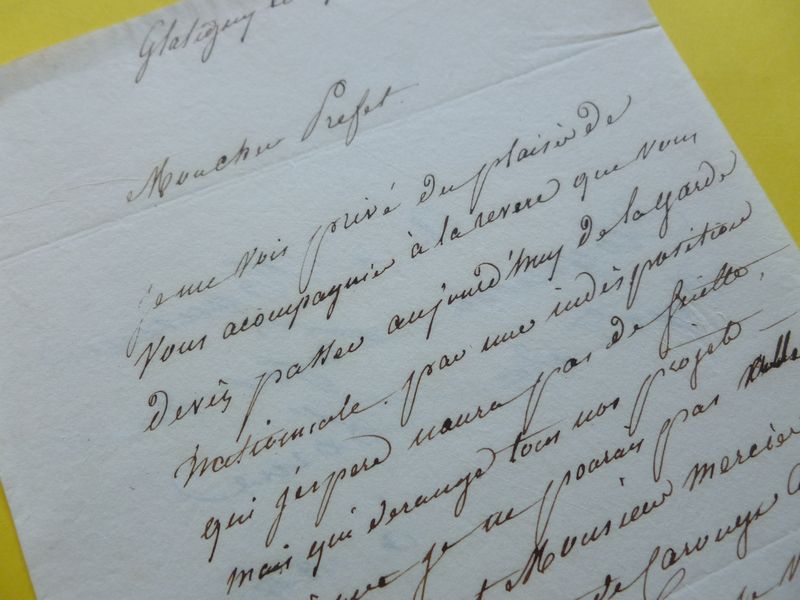 Glatigny le
Moncher Prefet
je me vois privé du plaisir de
vous acompagnier à la revere que vous
devés passer aujourd'huy de la garde
nationnale par une indisposition
qui j'espere naura pas de suitte,
mais qui derange tous nos projets
que je ne pourai pas
Monsieur mercier
de Carouge